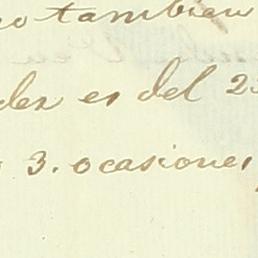 tambien
es del 2
3. ocasiones